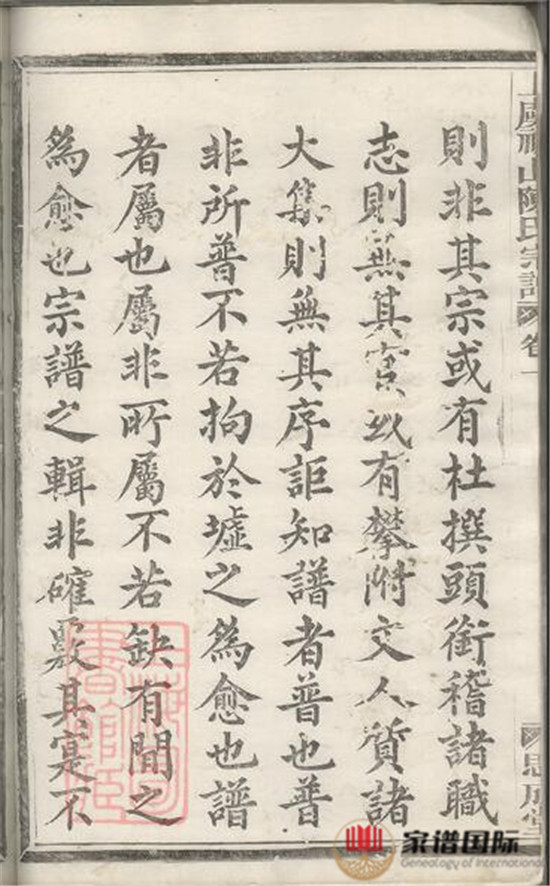 則非其宗或有杜撰頭銜稽諸職
志則無其實或有攀附文人質諸
大集則無其序詎知譜者普也普
非所普不若拘於墟之為愈也譜
者屬也屬非所屬不若缺有間之
為愈也宗譜之輯非確覈其寔不
陳氏宗譜
卷一
家谱国际
Genealogy of International